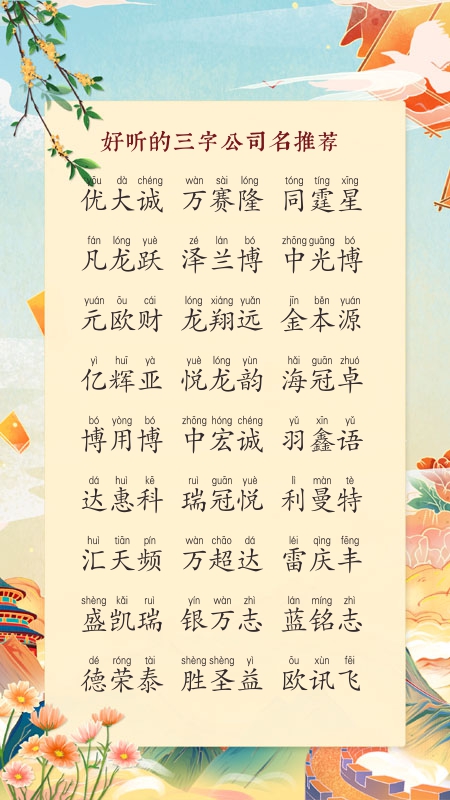 好听的三字公司名推荐
yōu dà chéng wàn sài lóng tóng tíng xīng
优大诚 万赛隆 同霆星
fán lóng yuè zé lán bó zhōng guāng bó
凡龙跃 泽兰博 中光博
yuán ōu cái lóng xiáng yuǎn jīn běn yuán
元欧财 龙翔远 金本源
yì huī yà yuè lóng yùn hǎi guān zhuó
亿辉亚 悦龙韵 海冠卓
bó yòng bó zhōng hóng chéng yǔ xīn yǔ
博用博 中宏诚 羽鑫语
dá huì kē ruì guān yuè lì màn tè
达惠科 瑞冠悦 利曼特
huì tiān pín wàn chāo dá léi qìng fēng
汇天频 万超达 雷庆丰
shèng kǎi ruì yín wàn zhì lán míng zhì
盛凯瑞 银万志 蓝铭志
dé róng tài shèng shèng yì ōu xùn fēi
德荣泰 胜圣益 欧讯飞